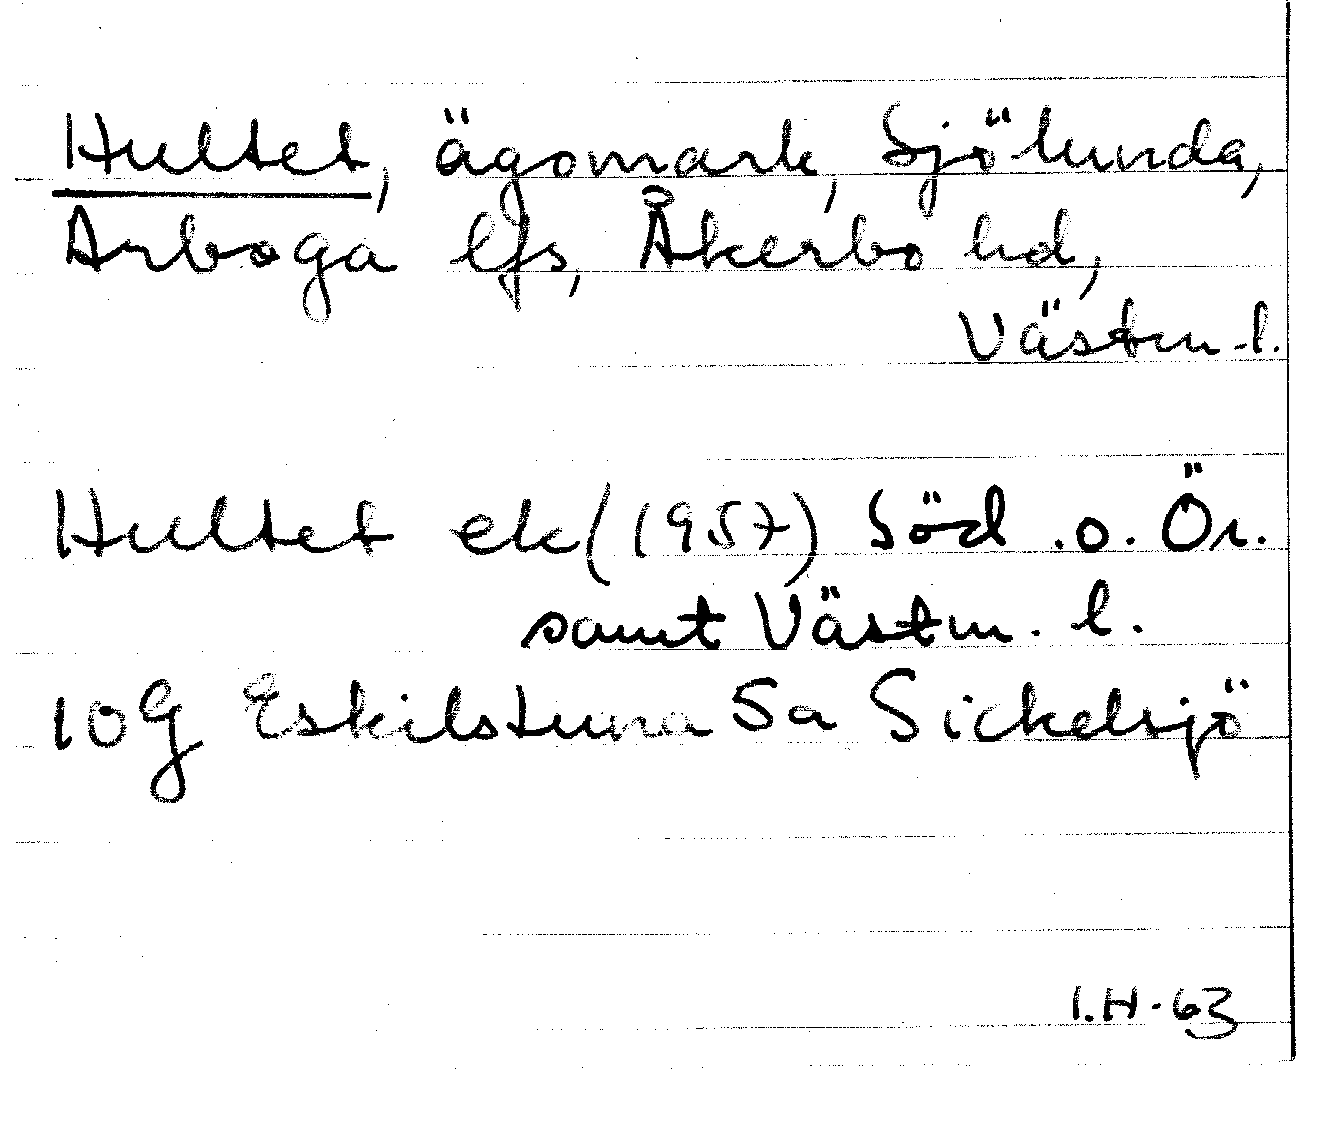 Hultet, ägomark, Sjölunda,
Arboga lfs, Åkerbo hd,
Västm. l.
Hultet ek (1957) Söd. o. Ör.
samt Västm. l.
10g Eskilstuna 5a Sickelsjö
I.H. 63